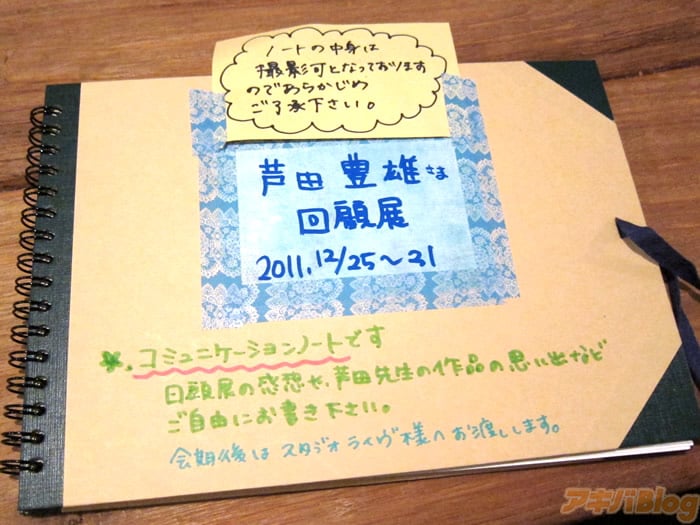 ノートの中身は
撮影可となっております
のであらかじめ
ご了承下さい。
芦田 豊雄さま
回顧展
2011.12/25〜31
コミュニケーションノートです
回顧展の感想や、芦田先生の作品の思い出など
ご自由にお書き下さい。
会期後はスタジオライヴ様へお渡しします。
アキバBlog